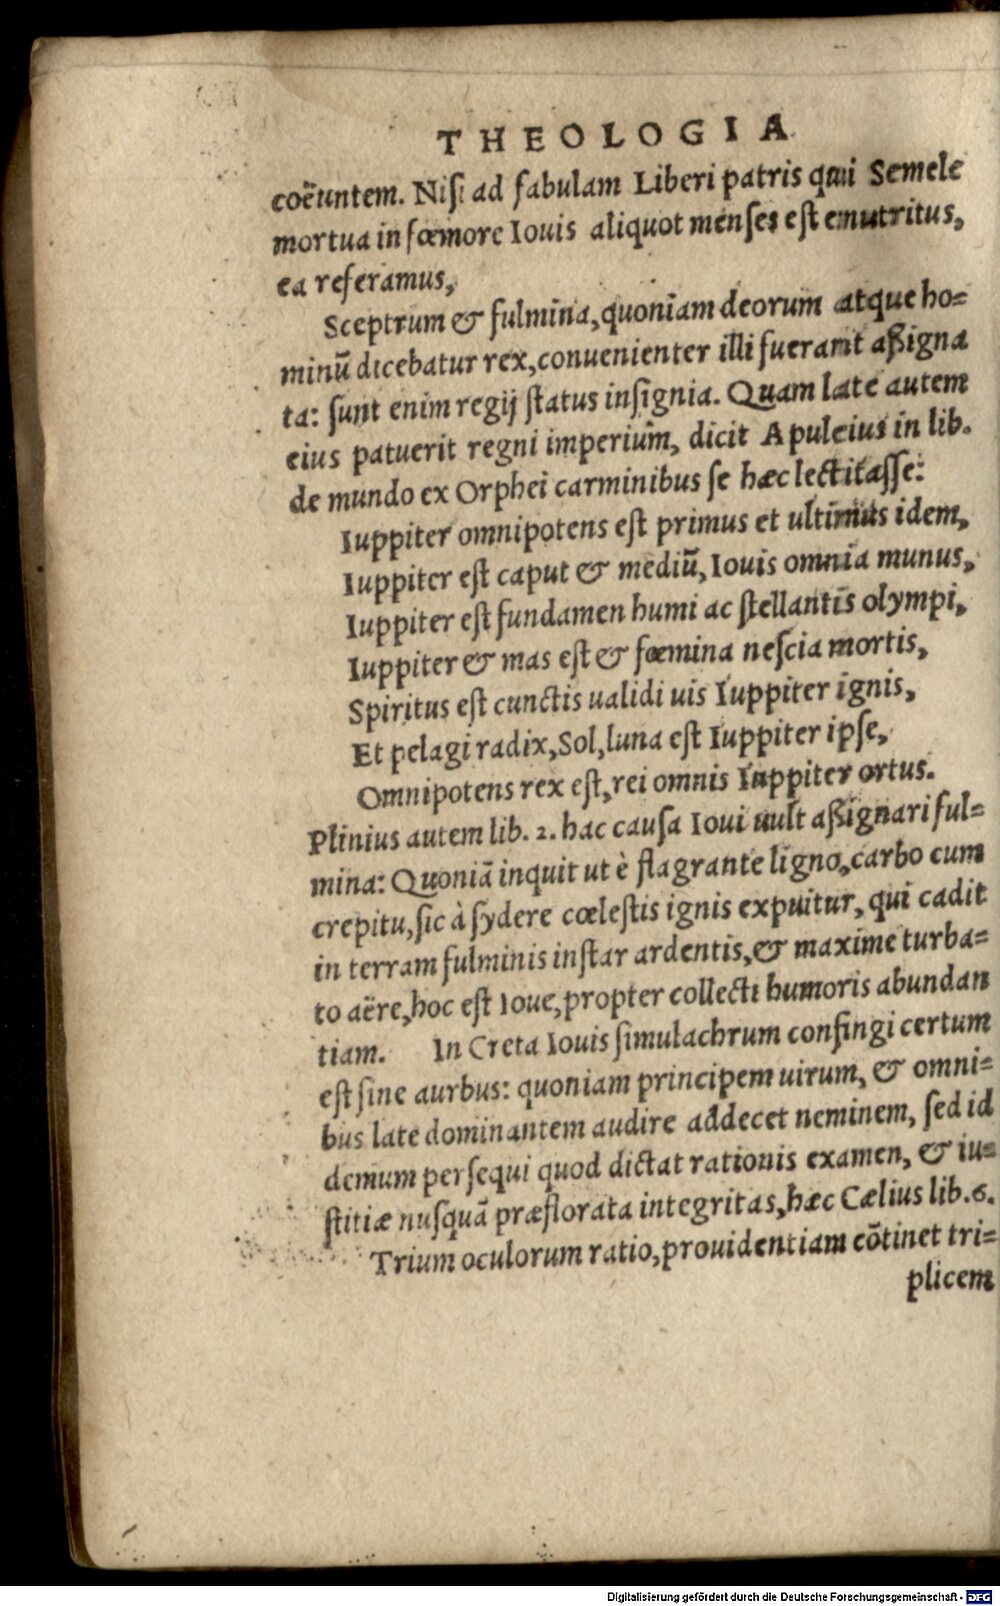 THEOLOGIA
coëuntem. Nisi ad fabulam Liberi patris qui Semele
mortua in fœmore Iouis aliquot menses est enutritus,
ea referamus,
Sceptrum & fulmina, quoniam deorum atque ho=
minū dicebatur rex, conuenienter illi fuerant aßigna
ta: sunt enim regij status insignia. Quam late autem
eius patuerit regni imperium, dicit Apuleius in lib.
de mundo ex Orphei carminibus se hæc lectitasse:
Iuppiter omnipotens est primus et ultimus idem,
Iuppiter est caput & mediū, Iouis omnia munus,
Iuppiter est fundamen humi ac stellantis olympi,
Iuppiter & mas est & fœmina nescia mortis,
Spiritus est cunctis ualidi uis Iuppiter ignis,
Et pelagi radix, Sol, luna est Iuppiter ipse,
Omnipotens rex est, rei omnis Iuppiter ortus.
Plinius autem lib. 2. hac causa Ioui uult aßignari ful=
mina: Quoniā inquit ut è flagrante ligno, carbo cum
crepitu, sic à sydere cœlestis ignis expuitur, qui cadit
in terram fulminis instar ardentis, & maxime turba=
to aëre, hoc est Ioue, propter collecti humoris abundan
tiam. In Creta Iouis simulachrum confingi certum
est sine aurbus: quoniam principem uirum, & omni=
bus late dominantem audire addecet neminem, sed id
demum persequi quod dictat rationis examen, & iu=
stitiæ nusquā præflorata integritas, hæc Cælius lib. 6.
Trium oculorum ratio, prouidentiam cōtinet tri=
plicem
Digitalisierung gefördert durch die Deutsche Forschungsgemeinschaft - DFG